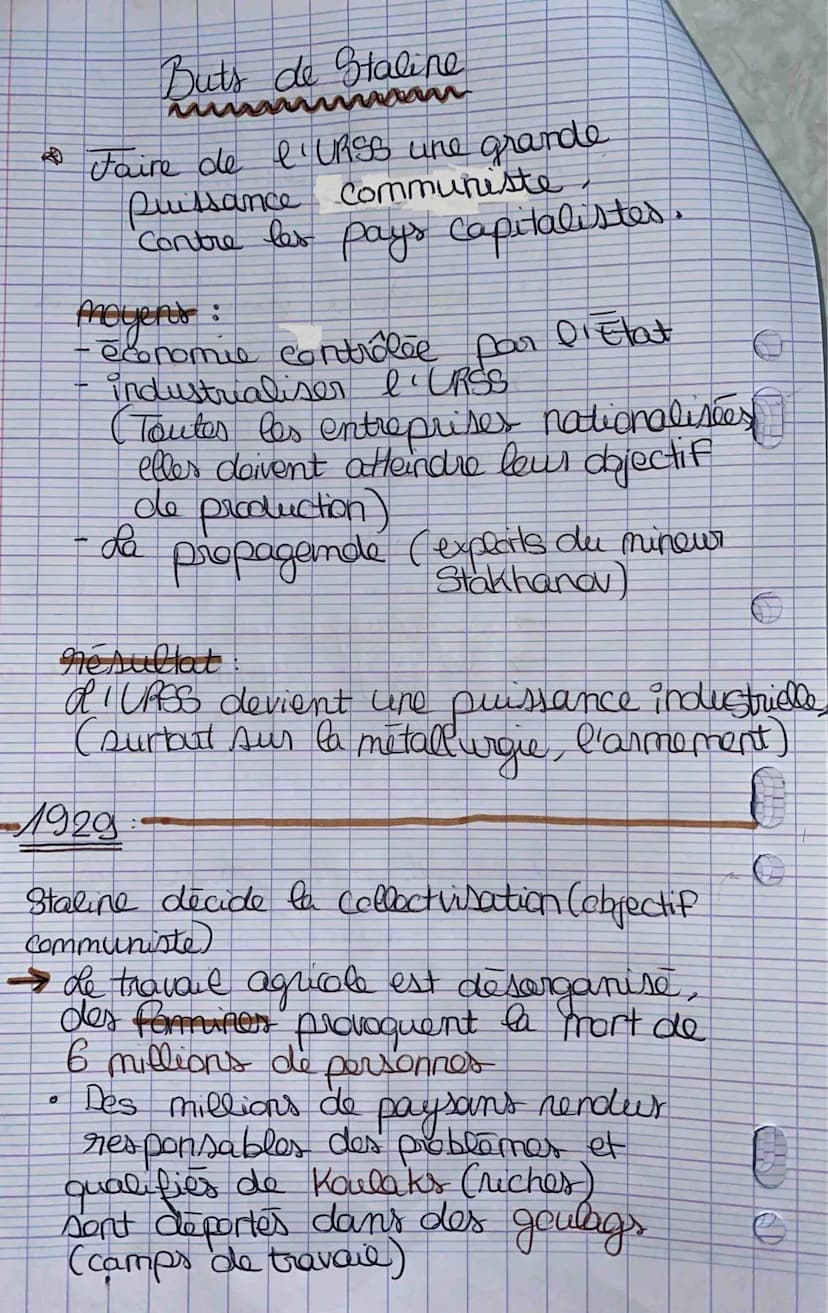 Buts de Staline
Faire de l'URSS une grande
puissance communiste,
contre les pays capitalistes.
moyens :
- économie contrôlée par l'État
- industrialiser l'URSS
(Toutes les entreprises nationalisées,
elles doivent atteindre leur objectif
de production)
- La propagande (exploits du mineur
Stakhanov)
résultat :
L'URSS devient une puissance industrielle,
(surtout sur la métallurgie, l'armement)
- 1929 :
Staline décide la collectivisation (objectif
communiste)
→ Le travail agricole est désorganisé,
des famines provoquent la mort de
6 millions de personnes
• Des millions de paysans rendus
responsables des problèmes et
qualifiés de Koulaks (riches)
sont déportés dans des goulags
(camps de travail)